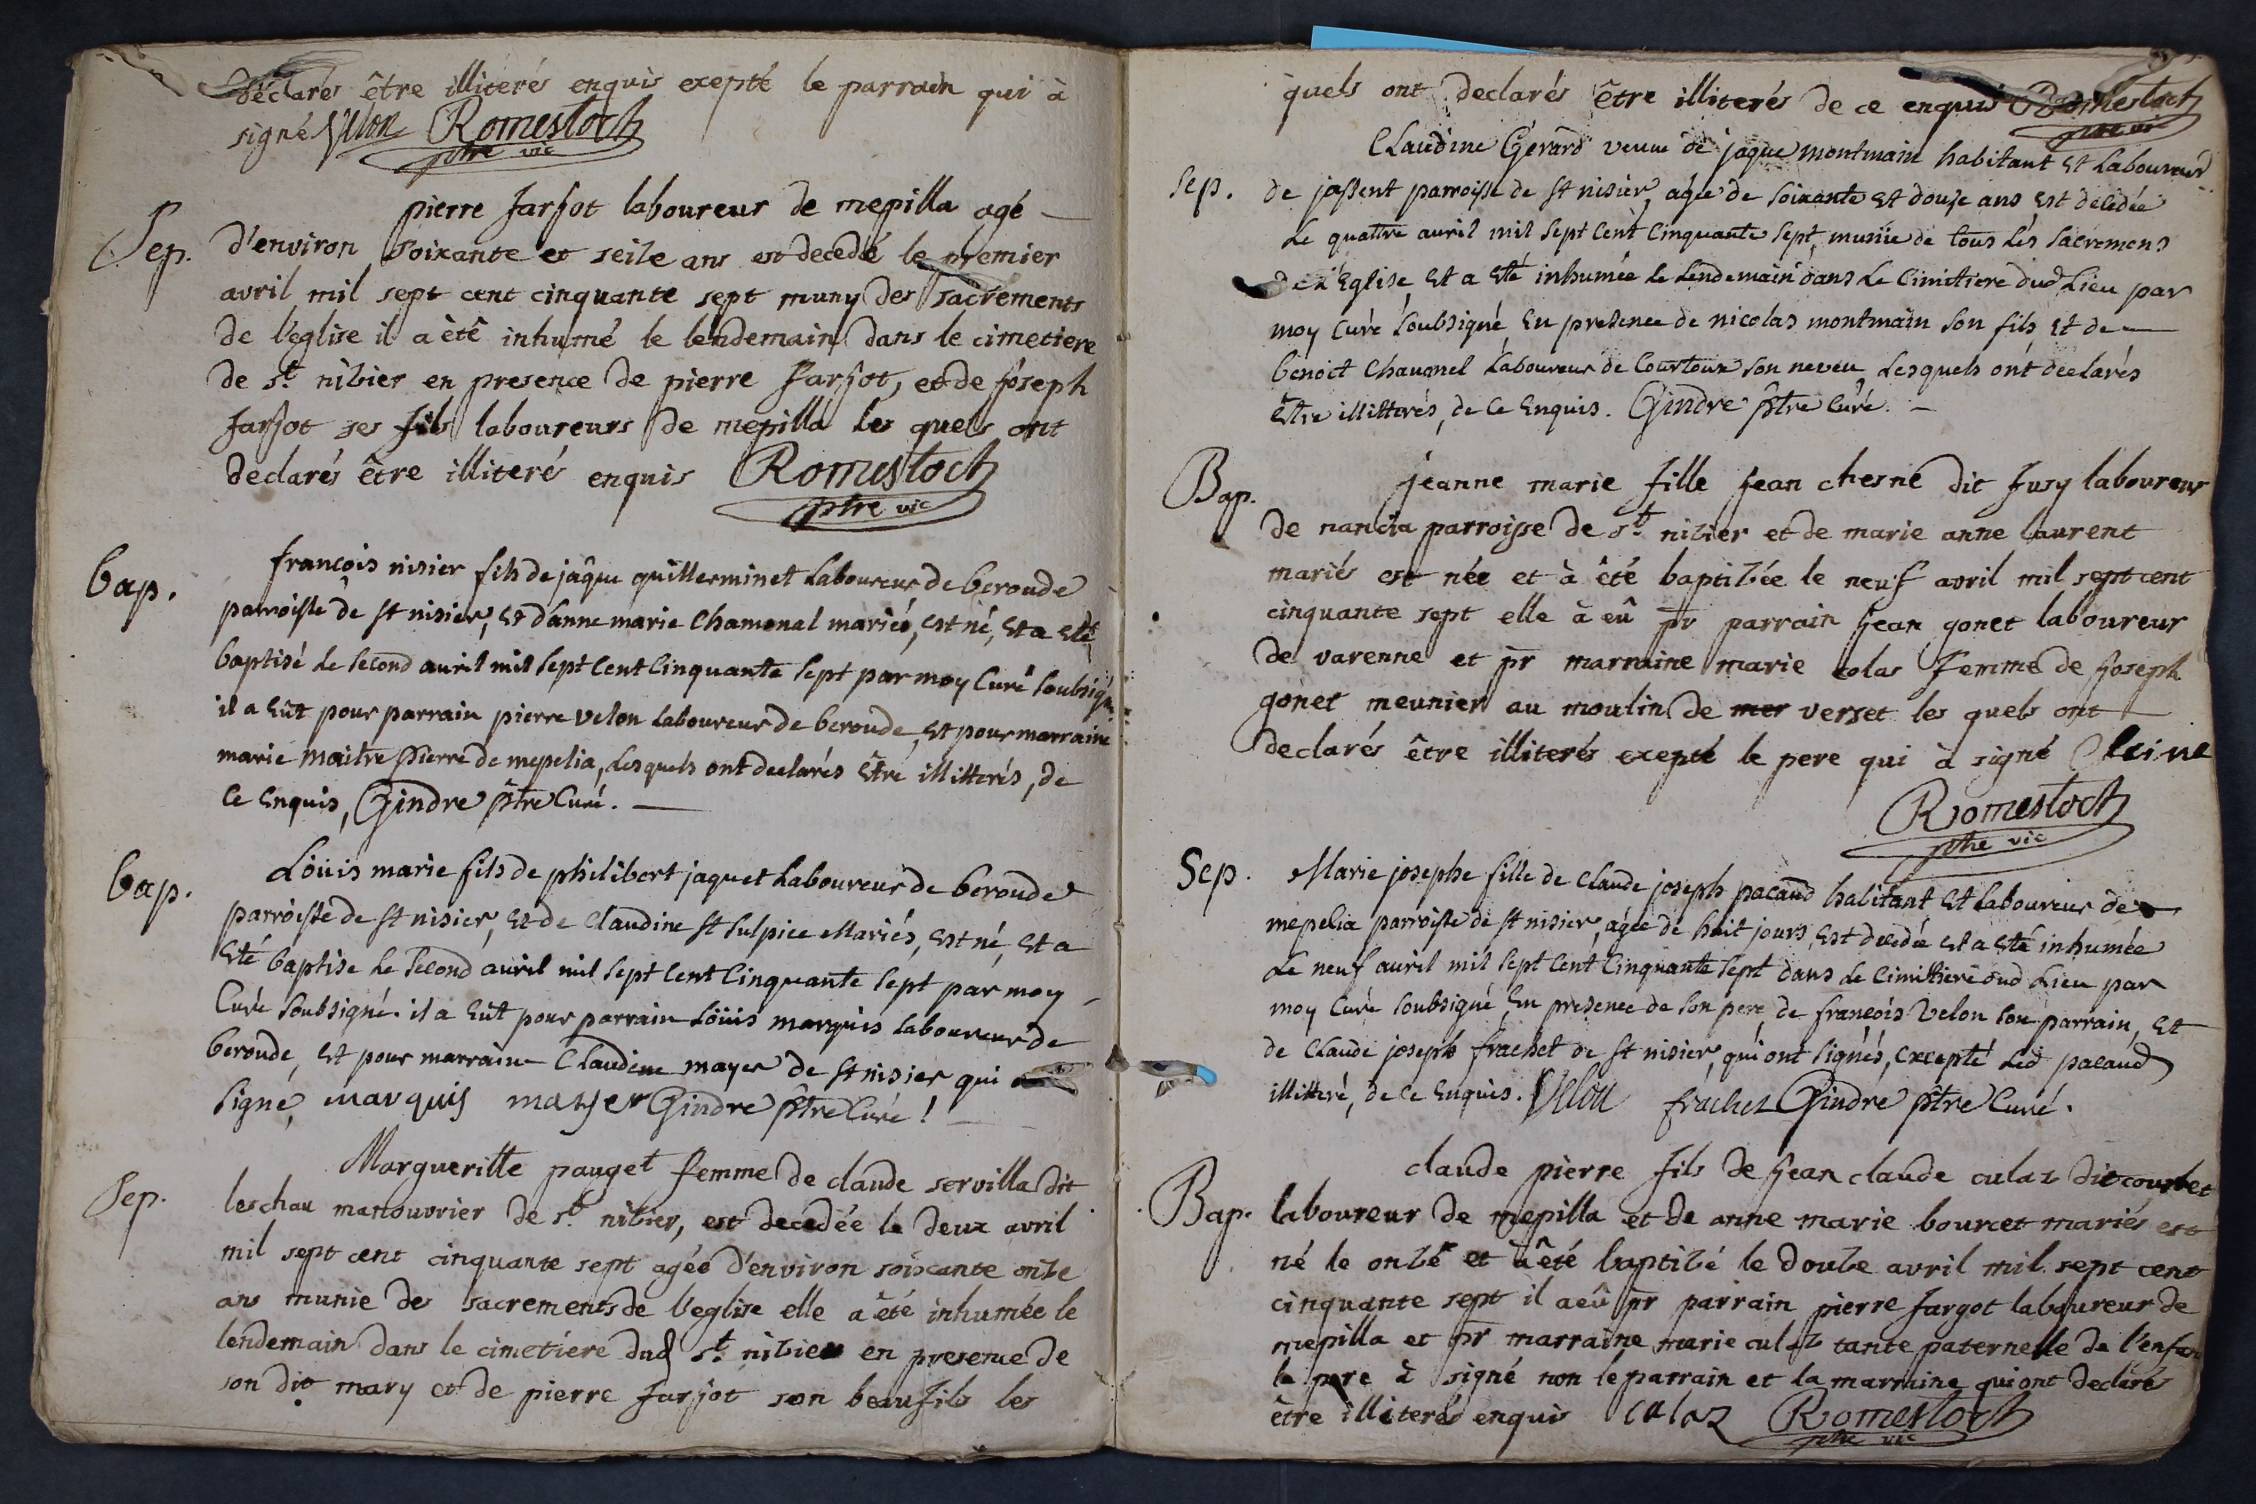 declarés être illiterés enquis exepté le parrain qui à
signé Velon Romestoch
ptre vic
pierre Farjot laboureur de mepilla agé
Sep. d'environ soixante et seize ans est decedé le premier
avril mil sept cent cinquante sept muny des sacrements
de l'eglise il a èté inhumé le lendemain dans le cimetiere
de st. nizier en presence de pierre Farjot, et de joseph
Farjot ses fils laboureurs de mepilla les quels ont
declarés être illiteré enquis Romestoch
ptre vic
françois nisier fils de jâque guillerminet Laboureur de beroude
bap. parroisse de st nisier, et d'anne marie Chamonal mariés, est né, et a eté
baptisé le second avril mil sept cent cinquante sept par moy Curé soubsigné
il a eût pour parrain pierre velon laboureur de beroude, et pour marraine
marie maitre pierre de mepelia, lesquels ont declarés être illitterés, de
ce enquis, Gindre ptre Curé.
Loüis marie fils de philibert jaquet Laboureur de beroude
bap. parroisse de st nisier, et de Claudine st sulpice Mariés, est né, et a
eté baptise le second avril mil sept cent cinquante sept par moy
Curé soubsigné. il a eût pour parrain Loüis marquis laboureur de
beroude, et pour marraine Claudine mayer de st nisier qui
signé, marquis mayer Gindre ptre Curé !
Margueritte pauget femme de claude servilla dit
Sep. leschau manouvrier de st. nizier, est decedée le deux avril
mil sept cent cinquante sept agée d'environ soixante onze
ans munie des sacrements de l'eglise elle a èté inhumée le
lendemain dans le cimetiere dud st. nizier en presence de
son dit mary et de pierre Farjot son beaufils les
quels ont declarés être illiterés de ce enquis Romestoch
ptre vic
Claudine Gerard veuve de jaque montmain habitant et Laboureur
sep. de jassent parroisse de st nisier, agée de soixante et douze ans est decedée
le quattre avril mil sept cent cinquante sept, muniie de tous les sacremens
de l'Eglise, et a eté inhumée le lendemain dans le Cimittiere dud Lieu par
moy Curé soubsigné en presence de nicolas montmain son fils, et de
benoit Chaumel Laboureur de Courtoux son neveu, lesquels ont declarés
être illitterés, de ce enquis. Gindre ptre Curé.
jeanne marie fille jean chesne dit Fusy laboureur
Bap. de nancia parroisse de st. nizier et de marie anne laurent
mariés est née et à èté baptizée le neuf avril mil sept cent
cinquante sept elle à eû pr parrain jean gonet laboureur
de varenne et pr marraine marie colas femme de joseph
gonet meunier au moulin de mer verset les quels ont
declarés être illiterés exepté le pere qui à signé
Romestoch
ptre vic
Sep. Marie josephe fille de Claude joseph pacaud habitant et Laboureur de
mepelia parroisse de st nisier, agée de huit jours, est decedée et a eté inhumée
le neuf avril mil sept cent cinquante sept dans le cimittiere dud Lieu par
moy Curé soubsigné, en presence de son pere, de françois Velon son parrain, et
de Claude joseph frachet de st nisier, qui ont signés, excepté led pacaud
illitteré, de ce enquis. Velon frachet Gindre ptre Curé.
claude pierre fils de jean claude culaz dit courbet
Bap. laboureur de mepilla et de anne marie bourcet mariés est
né le onze et à êté baptizé le douze avril mil sept cent
cinquante sept il a eû pr parrain pierre Fargot laboureur de
mepilla et pr marraine marie culaz tante paternelle de l'enfan
le pere à signé non le parrain et la marraine qui ont declaré
ètre illiterés enquis culaz Romestoch
ptre vic